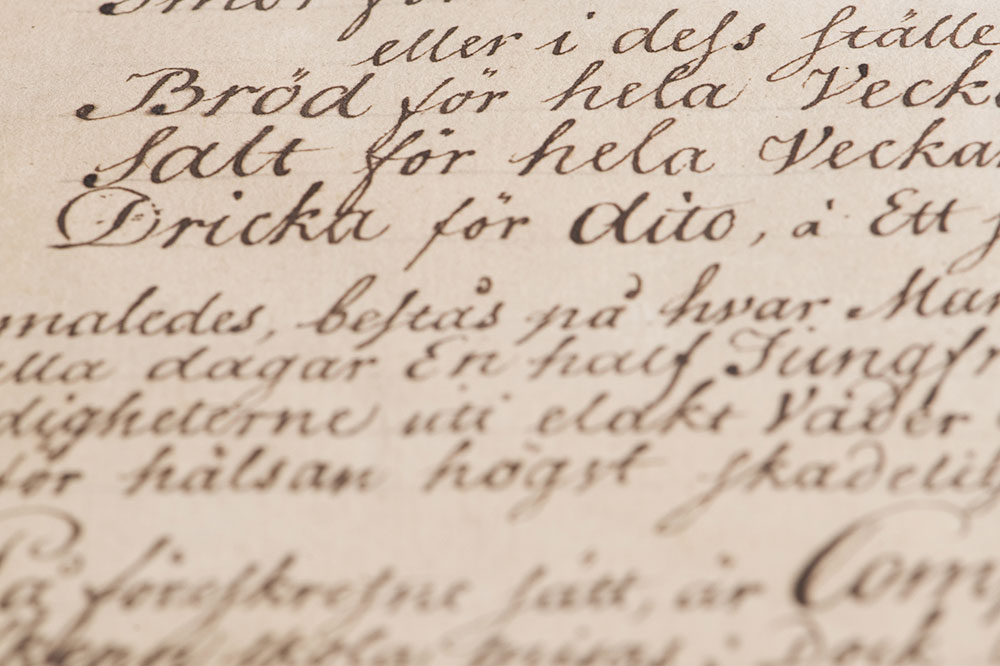 Smör för
eller i dess ställe
Bröd för hela Veck
Salt för hela Veckan
Dricka för dito, å Ett
maledes, bestås på hvar Man
alla dagar En half Jungfr
digheterne uti elakt Väder
för hälsan högst skadelig
På föreskrefne sätt, är Com